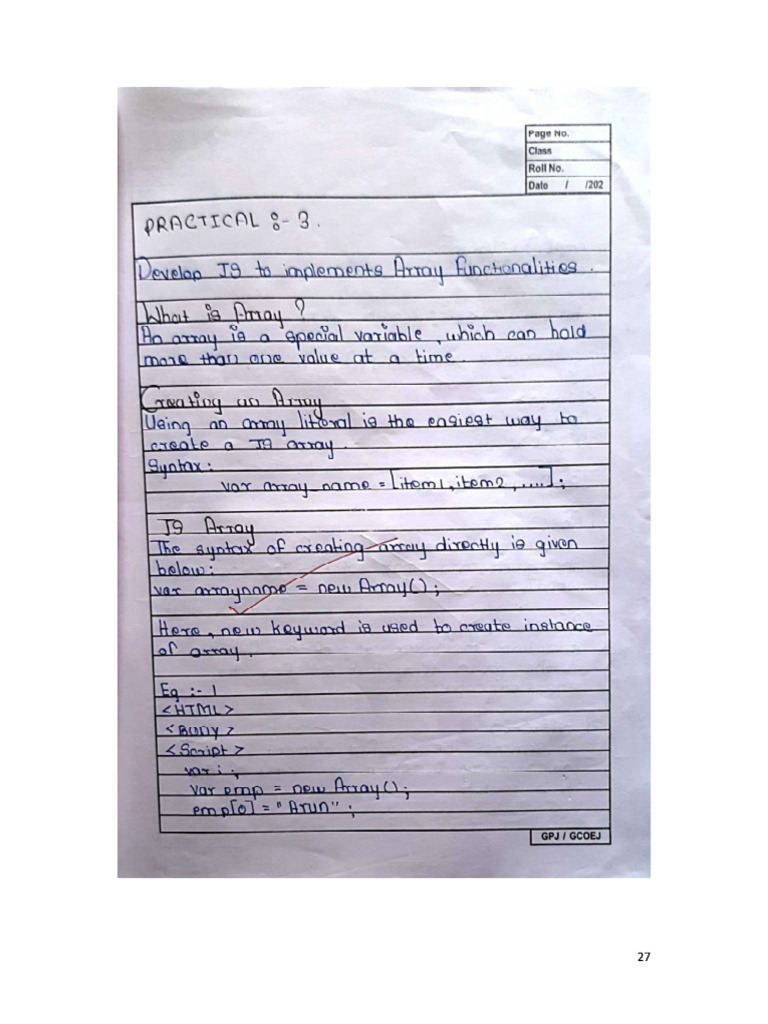 Page No.
Class
Roll No.
Date / /202
PRACTICAL :- 3.
Develop JS to implements Array Functionalities.
What is Array?
An array is a special variable, which can hold
more than one value at a time.
Creating an Array
Using an array literal is the easiest way to
create a JS array.
Syntax:
var array_name = [item1, item2, ....];
JS Array
The syntax of creating array directly is given
below:
var arrayname = new Array();
Here, new keyword is used to create instance
of array.
Eg :- 1
<HTML>
<BODY>
<Script>
var i;
var emp = new Array();
emp[0] = "Arun";
GPJ / GCOEJ
27